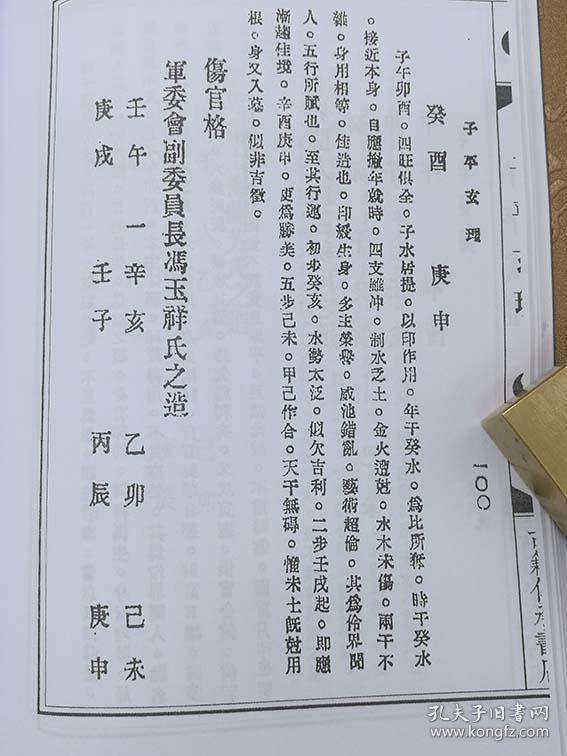 子平玄理
一〇〇
癸酉 庚申
子午卯酉。四旺俱全。子水居提。以印作用。年干癸水。為比所奪。時干癸水
。接近本身。自應撤年就時。四支雖冲。制水之土。金火遞尅。水木未傷。兩干不
雜。身用相等。佳造也。印綬生身。多主榮譽。咸池錯亂。藝術超倫。其為伶界聞
人。五行所賦也。至其行運。初步癸亥。水勢太泛。似欠吉利。二步壬戌起。即應
漸趨佳境。辛酉庚申。更為勝美。五步己未。甲己作合。天干無碍。惟未土既尅用
根。身又入墓。似非吉徵。
傷官格
軍委會副委員長馮玉祥氏之造
壬午 一辛亥 乙卯 己未
庚戌 壬子 丙辰 庚申
孔夫子旧书网
www.kongfz.com